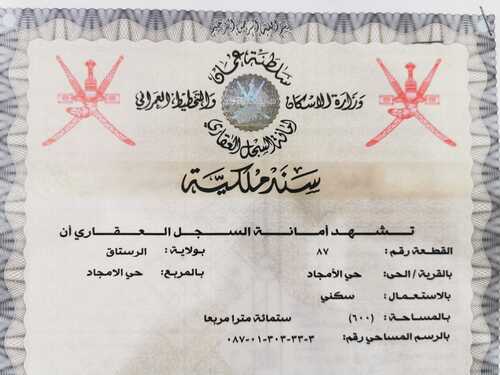 بسم الله الرحمن الرحيم
سلطنة عمان
وزارة الإسكان والتخطيط العمراني
أمانة السجل العقاري
سند ملكية
تشهد أمانة السجل العقاري أن
القطعة رقم: ٨٧ بولاية: الرستاق
بالقرية / الحي: حي الأمجاد بالمربع: حي الامجاد
بالاستعمال: سكني
بالمساحة: (٦٠٠) ستمائة مترا مربعا
بالرسم المساحي رقم: ٠٨٧-٠١-٣٠٣-٣٣-٣